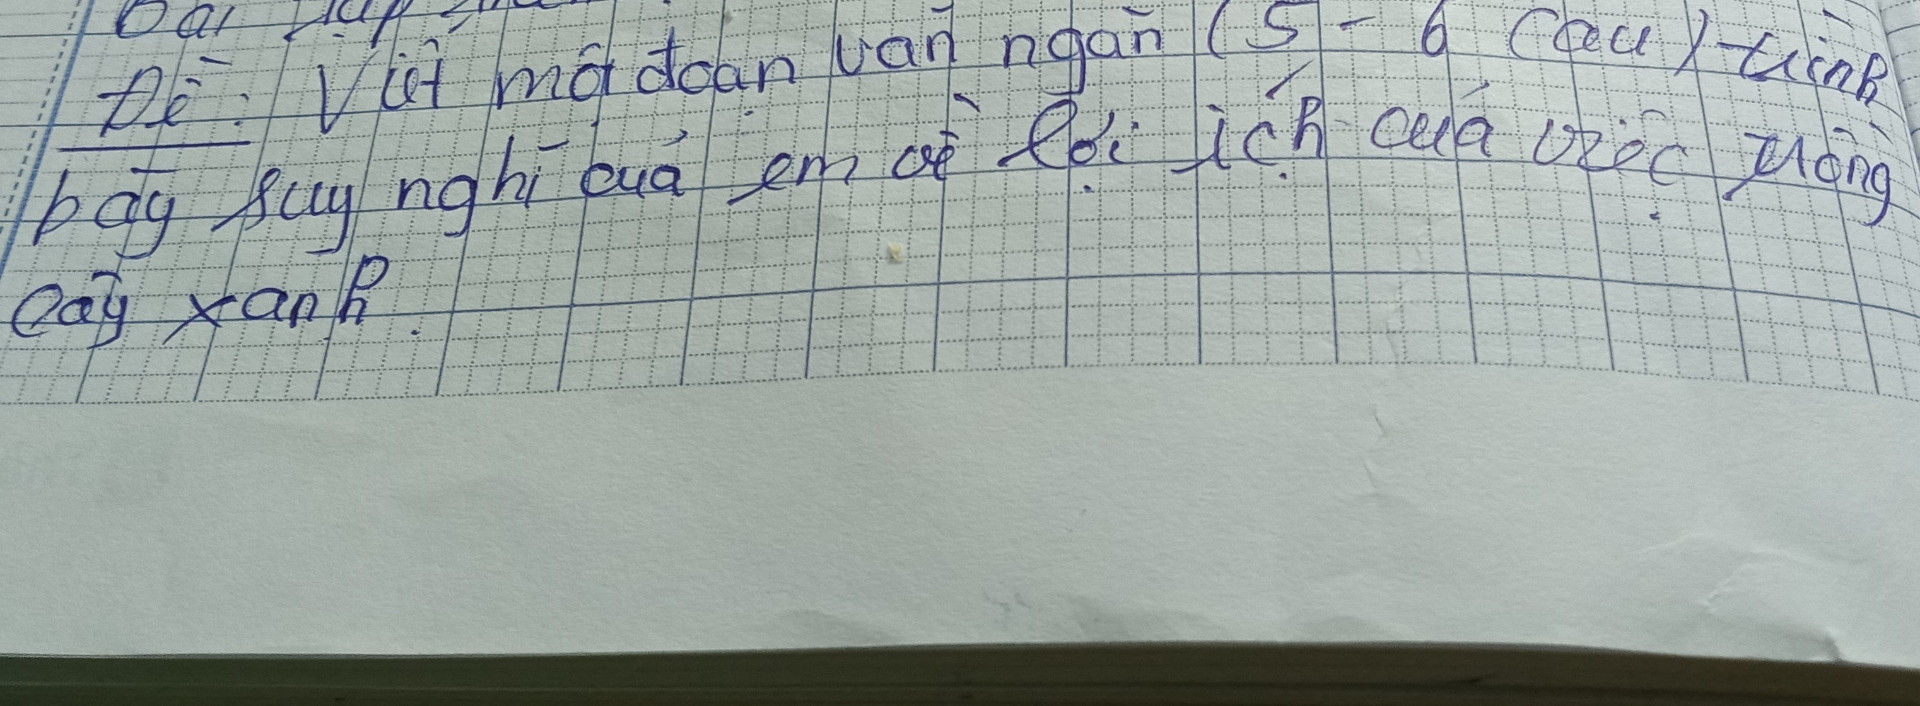 Bài tập
Đề: Viết một đoạn văn ngắn (5 - 6 câu) trình
bày suy nghĩ của em về lợi ích của việc trồng
cây xanh.